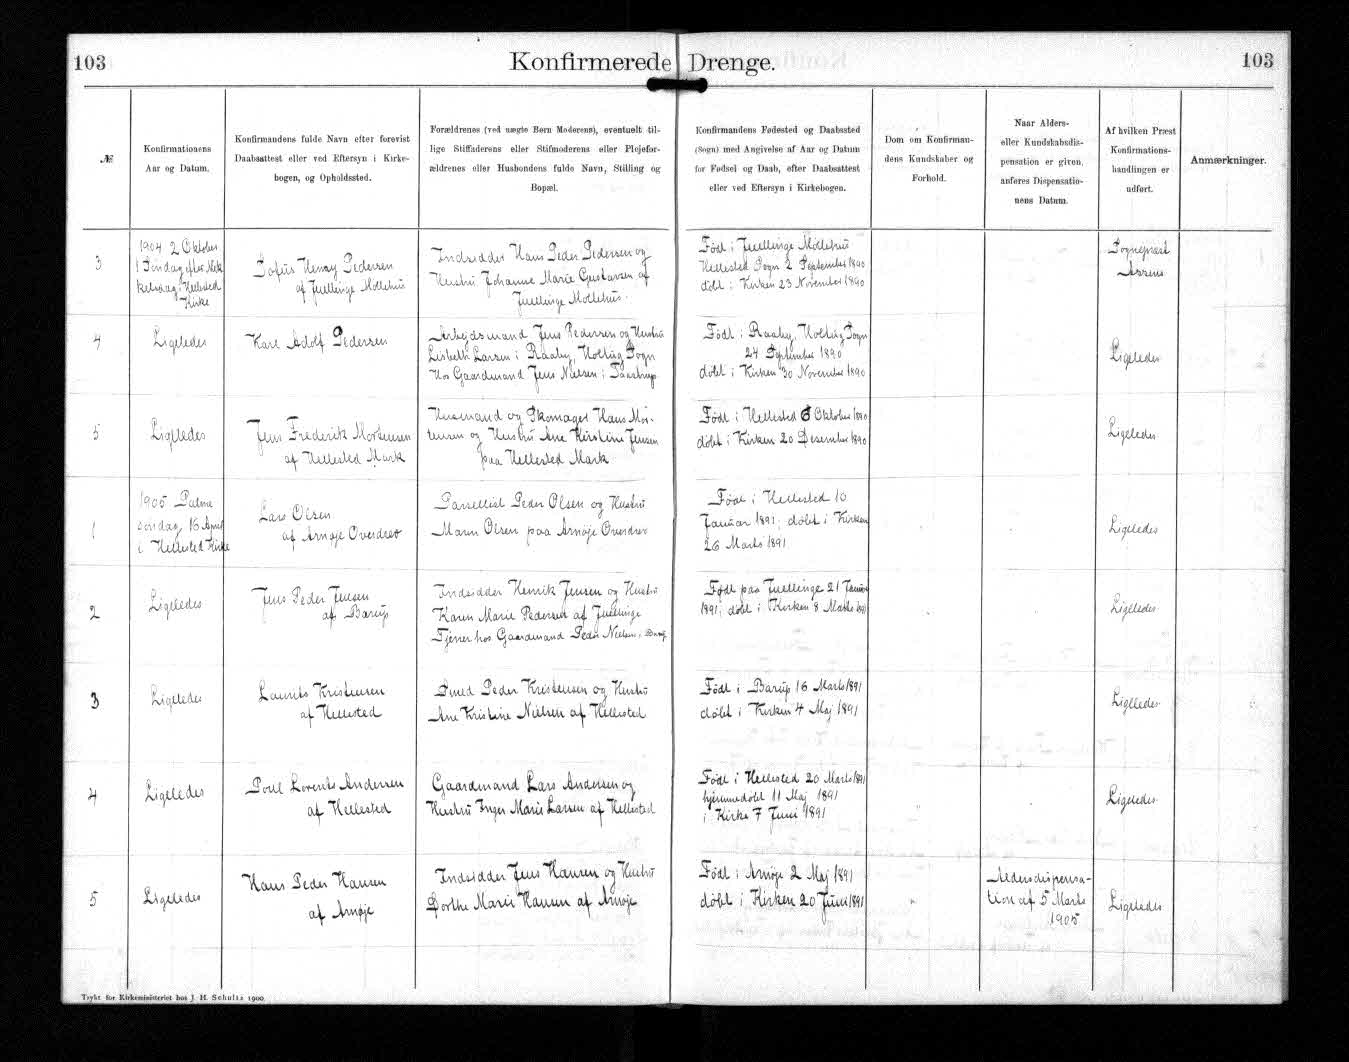 103
Konfirmerede Drenge.
103
№
Konfirmationens
Aar og Datum.
Konfirmandens fulde Navn efter forevist
Daabsattest eller ved Eftersyn i Kirke-
bogen, og Opholdssted.
Forældrenes (ved uægte Børn Moderens), eventuelt til-
lige Stiffaderens eller Stifmoderens eller Plejefor-
ældrenes eller Husbondens fulde Navn, Stilling og
Bopæl.
Konfirmandens Fødested og Daabssted
(Sogn) med Angivelse af Aar og Datum
for Fødsel og Daab, efter Daabsattest
eller ved Eftersyn i Kirkebogen.
Dom om Konfirman-
dens Kundskaber og
Forhold.
Naar Alders-
eller Kundskabsdis-
pensation er given,
anføres Dispensatio-
nens Datum.
Af hvilken Præst
Konfirmations-
handlingen er
udført.
Anmærkninger.
3
1904 2 Oktober
1 Søndag efter Mik
kelsdag i Hellested
Kirke
Sofus Henry Pedersen
af Juellinge Møllehus
Indsidder Hans Peder Pedersen og
Hustru Johanne Marie Gustavsen af
Juellinge Møllehus.
Født i Juellinge Møllehus
Hellested Sogn 2 September 1890
døbt i Kirken 23 November 1890
Sognepræst
4
Ligeledes
Karl Adolf Pedersen
Arbejdsmand Jens Pedersen og Hustru
Lisbeth Larsen i Raaby, Holtug Sogn
Hos Gaardmand Jens Nielsen i Taastrup
Født i Raaby, Holtug Sogn
24 September 1890
døbt i Kirken 30 November 1890
Ligeledes
5
Ligeledes
Jens Frederik Mortensen
af Hellested Mark
Husmand og Skomager Hans Mor-
tensen og Hustru Ane Kirstine Jensen
paa Hellested Mark
Født i Hellested 6 Oktober 1890
døbt i Kirken 20 Desember 1890
Ligeledes
1
1905 Palme
søndag, 16 April
i Hellested Kirke
Lars Olsen
af Arnøje Overdrev
Parsellist Peder Olsen og Hustru
Maren Olsen paa Arnøje Overdrev
Født i Hellested 10
Januar 1891; døbt i Kirken
26 Marts 1891
Ligeledes
2
Ligeledes
Jens Peder Jensen
af Barup
Indsidder Henrik Jensen og Hustru
Karen Marie Pedersen af Juellinge
Tjener hos Gaardmand Peder Nielsen i Barup
Født paa Juellinge 21 Januar
1891; døbt i Kirken 8 Marts 1891
Ligeledes
3
Ligeledes
Laurits Kristensen
af Hellested
Smed Peder Kristensen og Hustru
Ane Kristine Nielsen af Hellested
Født i Barup 16 Marts 1891
døbt i Kirken 4 Maj 1891
Ligeledes
4
Ligeledes
Poul Lorents Andersen
af Hellested
Gaardmand Lars Andersen og
Hustru Inger Marie Larsen af Hellested
Født i Hellested 20 Marts 1891
hjemmedøbt 11 Maj 1891
i Kirke 7 Juni 1891
Ligeledes
5
Ligeledes
Hans Peder Hansen
af Arnøje
Indsidder Jens Hansen og Hustru
Dorthe Marie Hansen af Arnøje
Født i Arnøje 2 Maj 1891
døbt i Kirken 20 Juni 1891
Aldersdispensa-
tion af 5 Marts
1905
Ligeledes
Trykt for Kirkeministeriet hos J. H. Schultz 1900